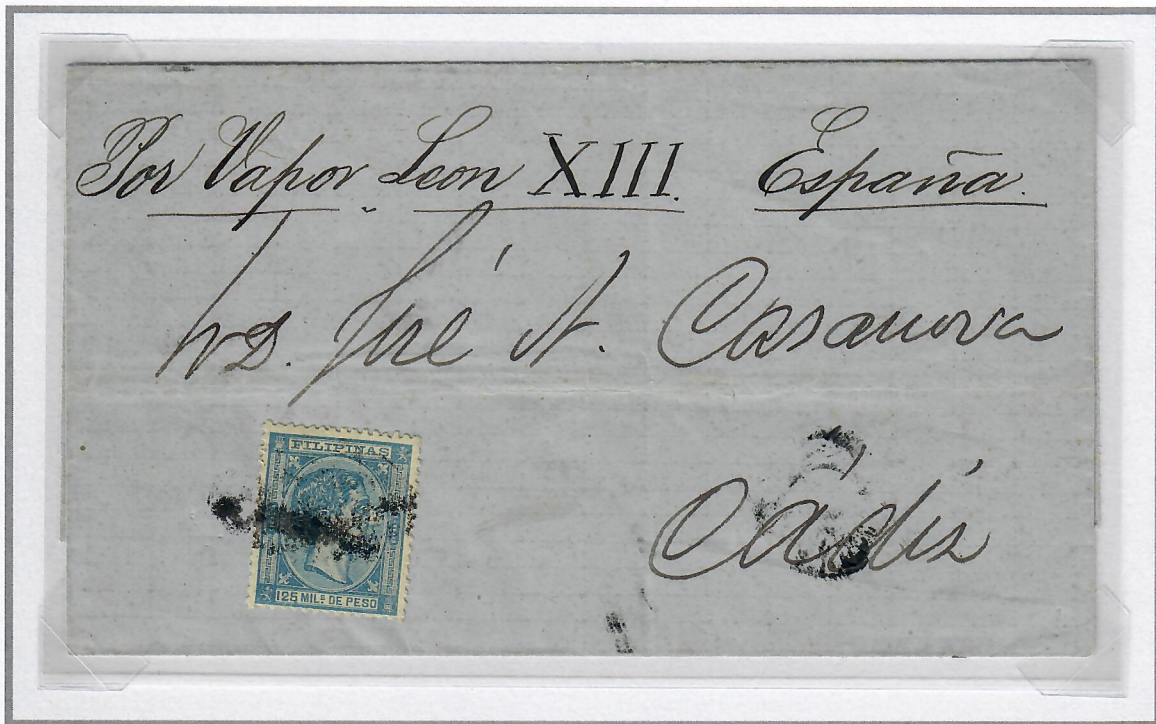 Por Vapor Leon XIII. España.
D. José A. Casanova
Cádiz
FILIPINAS
125 MILS DE PESO